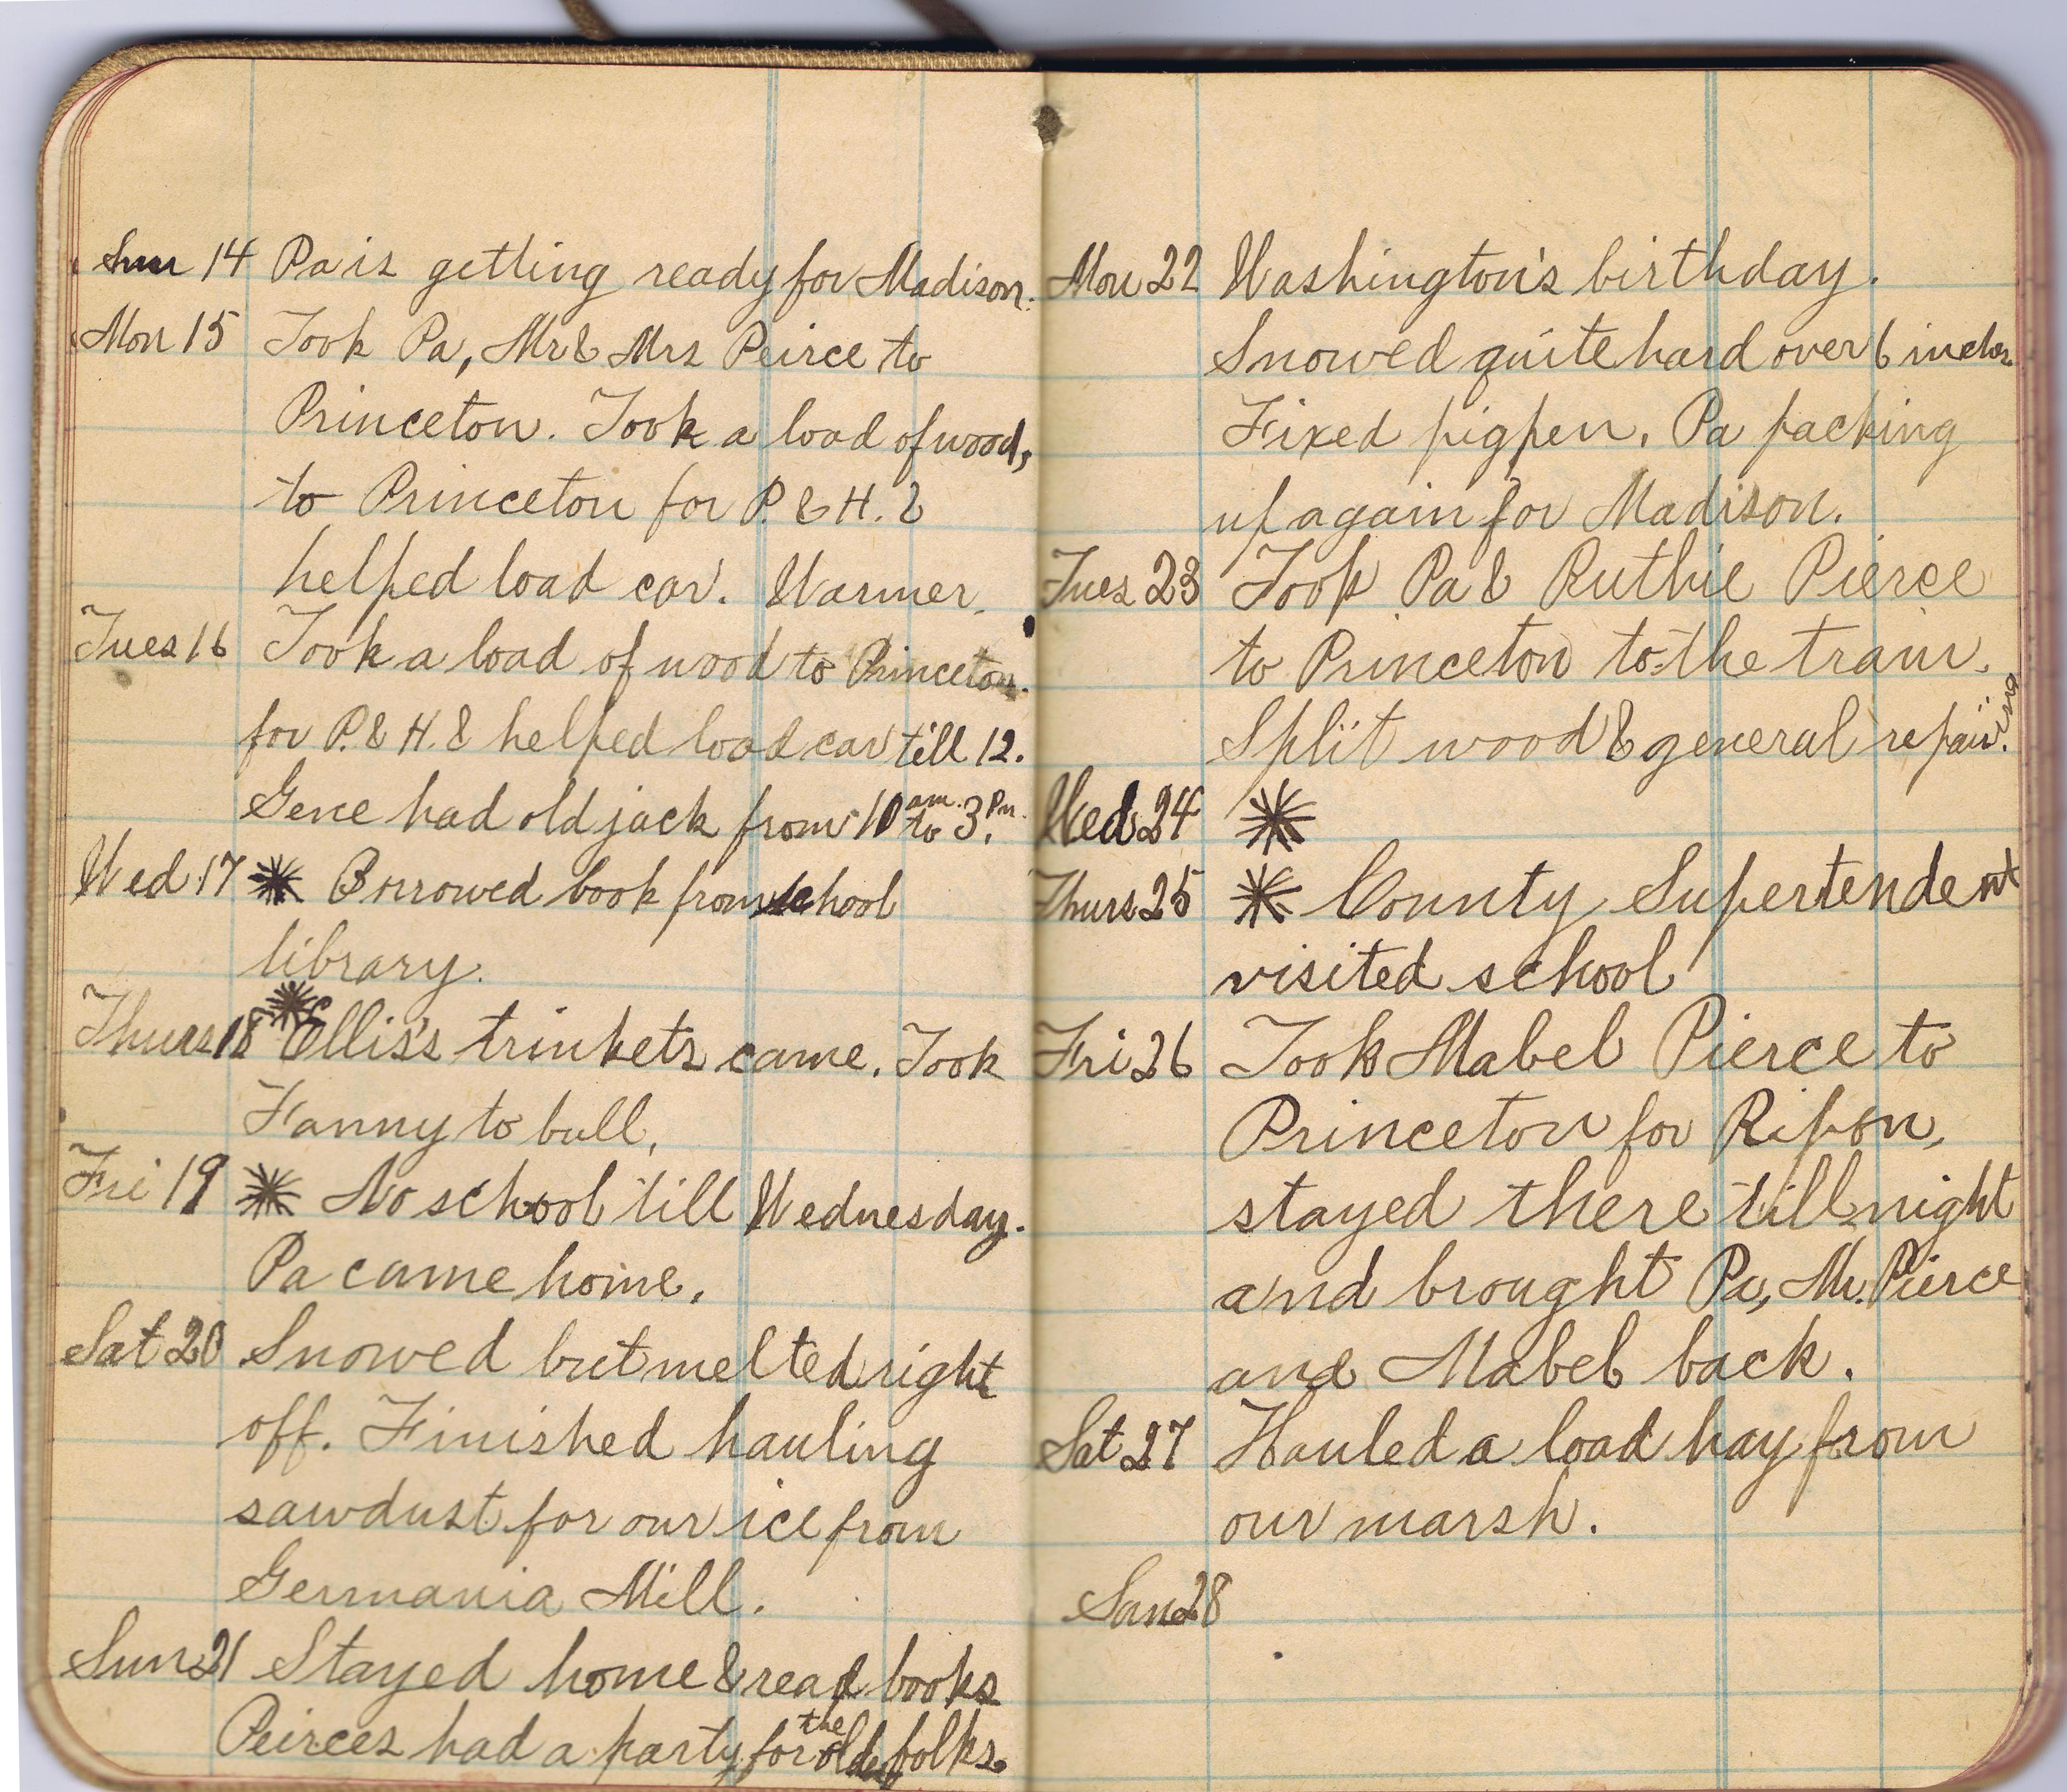 Sun 14 Pa is getting ready for Madison.
Mon 15 Took Pa, Mr & Mrs Peirce to
Princeton. Took a load of wood,
to Princeton for P. & H. &
helped load car. Warmer.
Tues 16 Took a load of wood to Princeton.
for P. & H. & helped load car till 12.
Gene had old jack from 10 am. to 3 Pm.
Wed 17 * Borrowed book from school
library.
Thurs 18 * Ellis's trinkets came. Took
Fanny to bull.
Fri 19 * No school till Wednesday.
Pa came home.
Sat 20 Snowed but melted right
off. Finished hauling
sawdust for our ice from
Germania Mill.
Sun 21 Stayed home & read books
Peirces had a party for the older folks.
Mon 22 Washington's birthday.
Snowed quite hard over 6 inches
Fixed pigpen. Pa packing
up again for Madison.
Tues 23 Took Pa & Ruthie Pierce
to Princeton to the train.
Split wood & general repairing.
Wed 24 *
Thurs 25 * County Supertendent
visited school
Fri 26 Took Mabel Pierce to
Princeton for Ripon,
stayed there till night
and brought Pa, Mr. Pierce
and Mabel back.
Sat 27 Hauled a load hay from
our marsh.
Sun 28